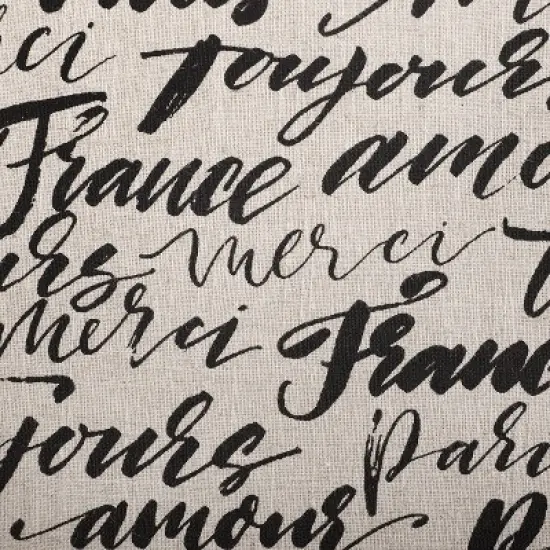 ci toujours
France amo
urs merci
merci Franc
jours Pari
amour